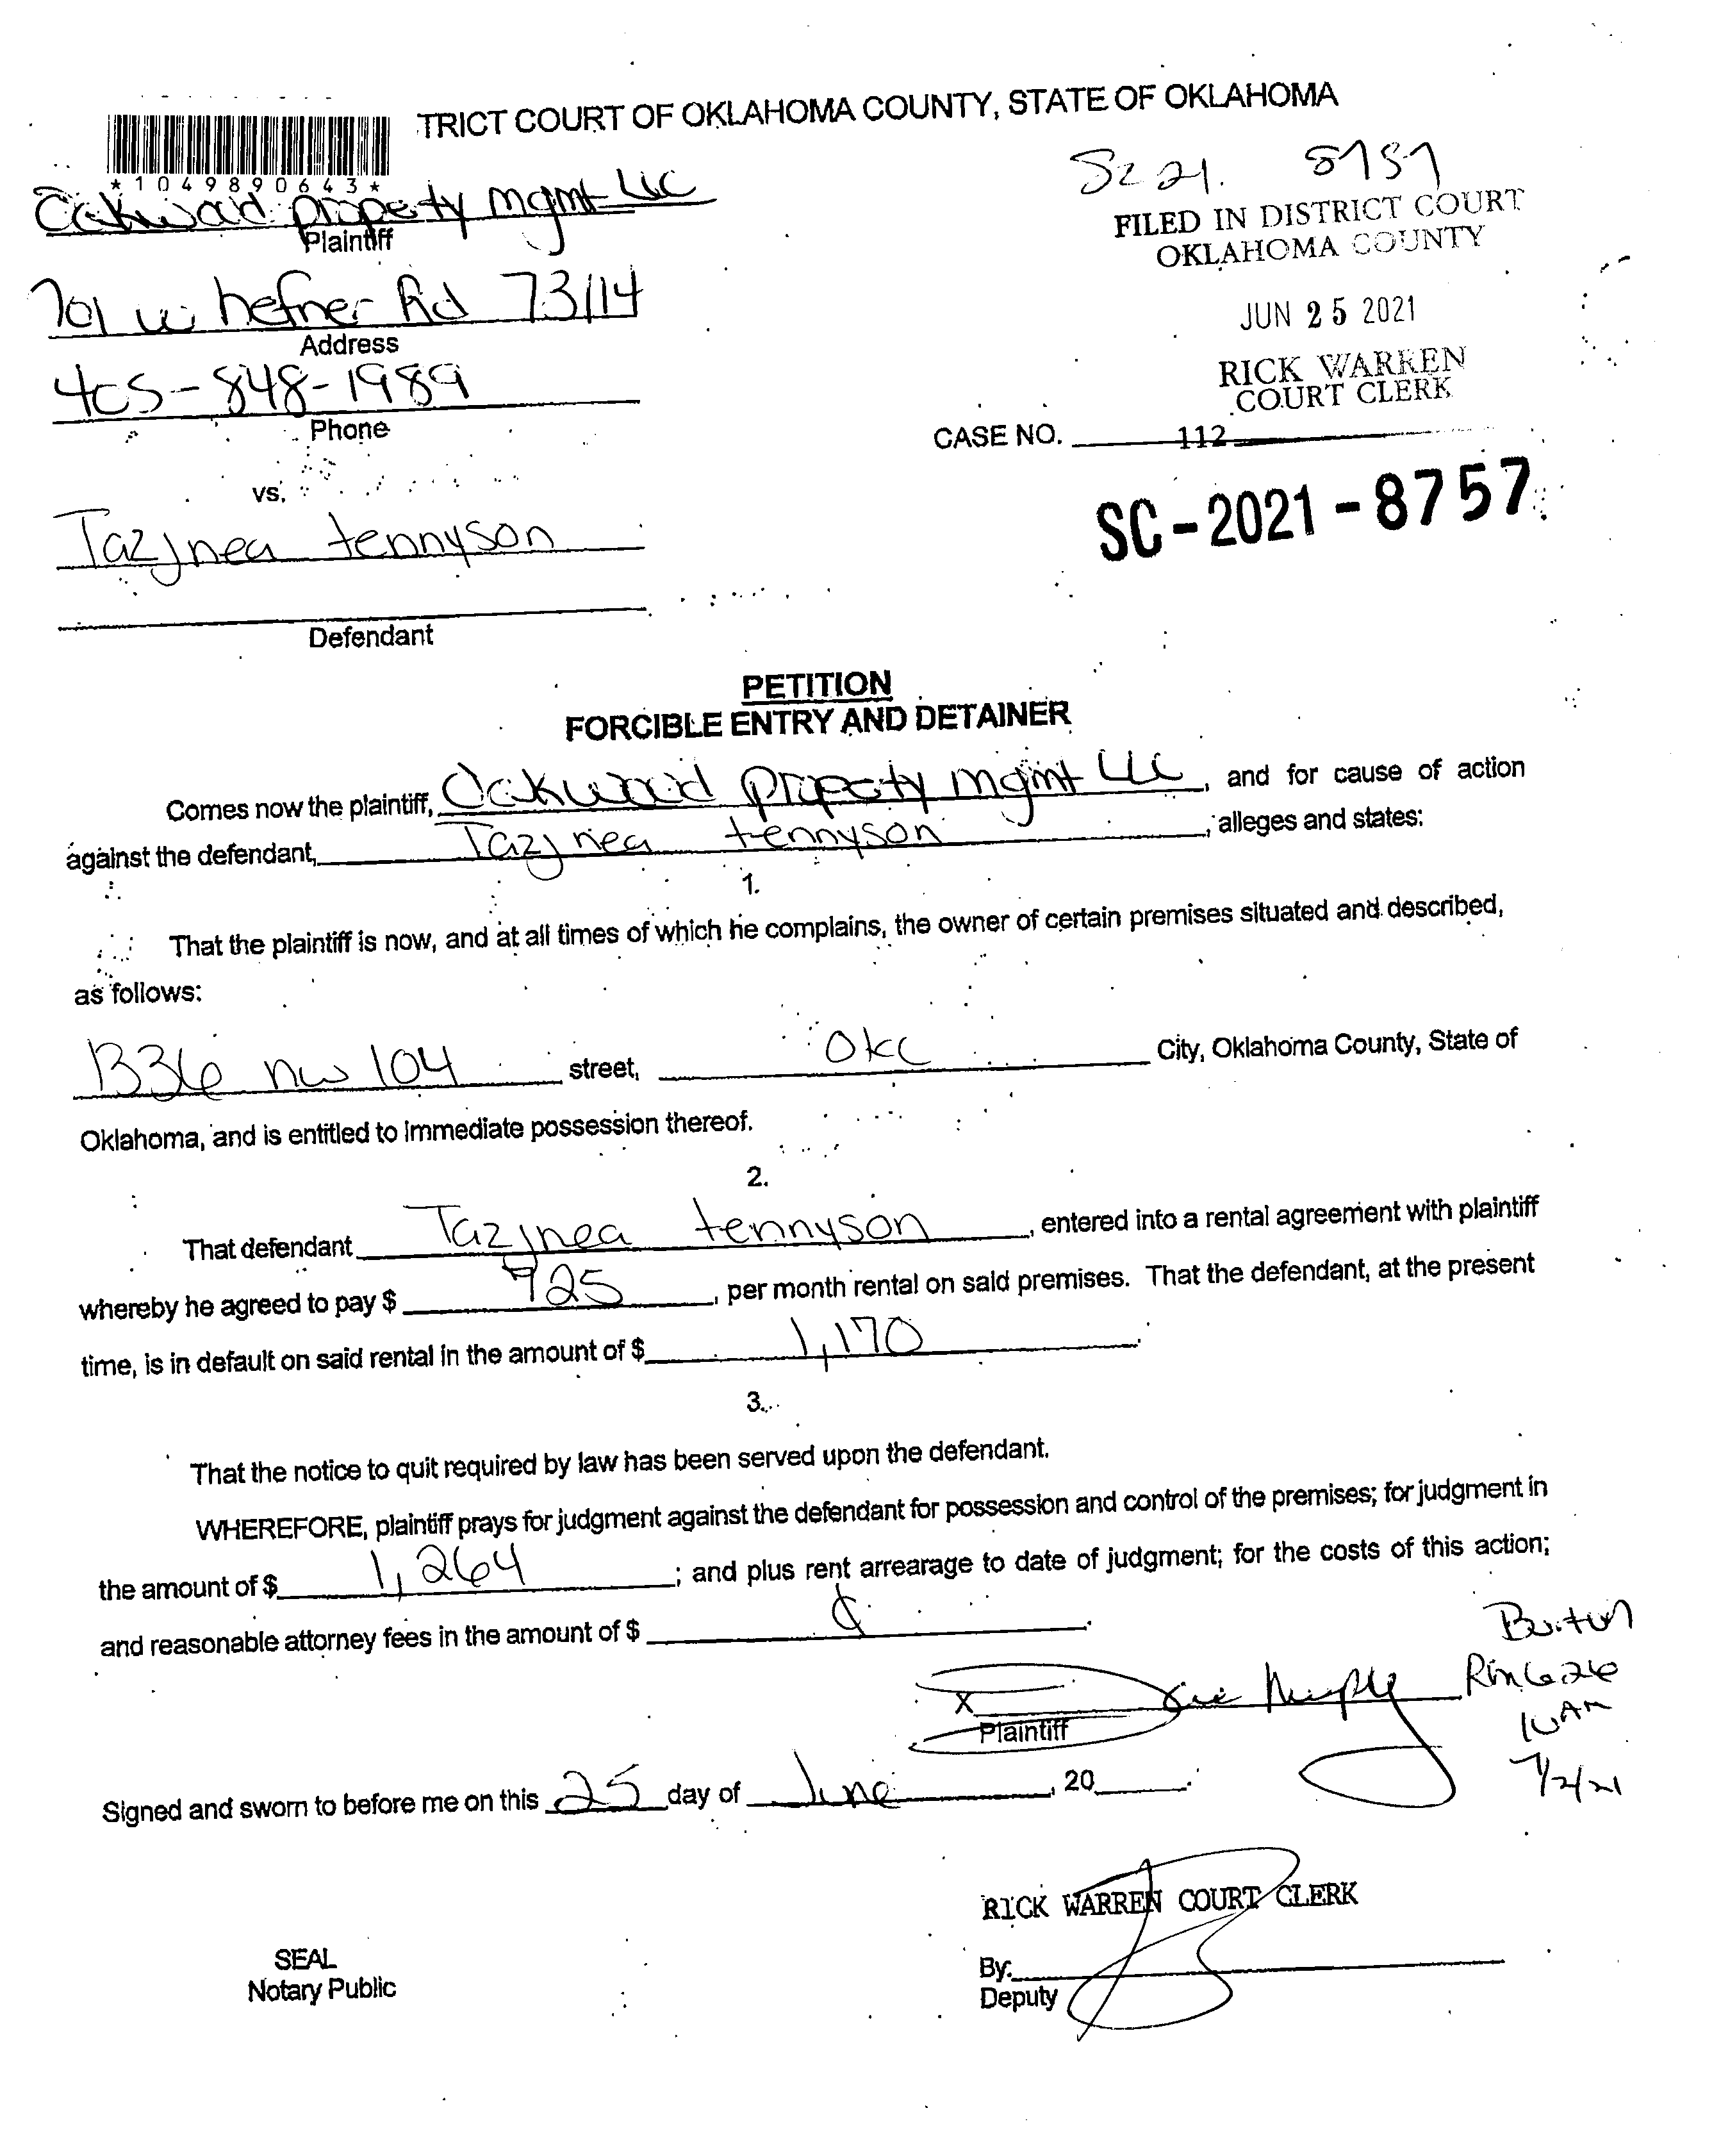 TRICT COURT OF OKLAHOMA COUNTY, STATE OF OKLAHOMA
*1049890643*
Oakwood property mgmt LLC
Plaintiff
SC 21. 8757
FILED IN DISTRICT COURT
OKLAHOMA COUNTY
701 w hefner Rd 73114
Address
JUN 25 2021
405-848-1989
Phone
RICK WARREN
COURT CLERK
CASE NO. 112
vs.
SC-2021-8757
Tazjnea tennyson
Defendant
PETITION
FORCIBLE ENTRY AND DETAINER
Comes now the plaintiff, Oakwood property mgmt LLC, and for cause of action
against the defendant, Tazjnea tennyson, alleges and states:
1.
That the plaintiff is now, and at all times of which he complains, the owner of certain premises situated and described,
as follows:
1336 nw 104 street, OKC City, Oklahoma County, State of
Oklahoma, and is entitled to immediate possession thereof.
2.
That defendant Tazjnea tennyson, entered into a rental agreement with plaintiff
whereby he agreed to pay $ 925, per month rental on said premises. That the defendant, at the present
time, is in default on said rental in the amount of $ 1,170.
3.
That the notice to quit required by law has been served upon the defendant.
WHEREFORE, plaintiff prays for judgment against the defendant for possession and control of the premises; for judgment in
the amount of $ 1,264; and plus rent arrearage to date of judgment; for the costs of this action;
and reasonable attorney fees in the amount of $
X Murphy
Plaintiff
Rm 626
10 AM
7/2/21
Signed and sworn to before me on this 25 day of June, 20
RICK WARREN COURT CLERK
SEAL
Notary Public
By:
Deputy